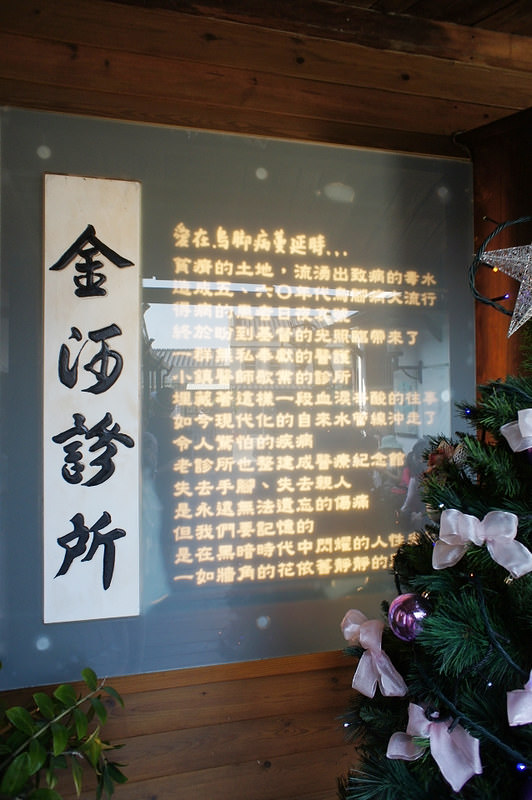 金河診所
愛在烏脚病蔓延時...
貧瘠的土地，流湧出致病的毒水
造成五、六〇年代烏脚病大流行
得病的
終於盼到基督的光照臨帶來了
一群無私奉獻的醫護
小鎮醫師敬業的診所
埋藏著這樣一段血淚辛酸的往事
如今現代化的自來水管線沖走了
令人驚怕的疾病
老診所也整建成醫療紀念館
失去手腳、失去親人
是永遠無法遺忘的傷痛
但我們要記憶的
是在黑暗時代中閃耀的人性
一如牆角的花依舊靜靜的